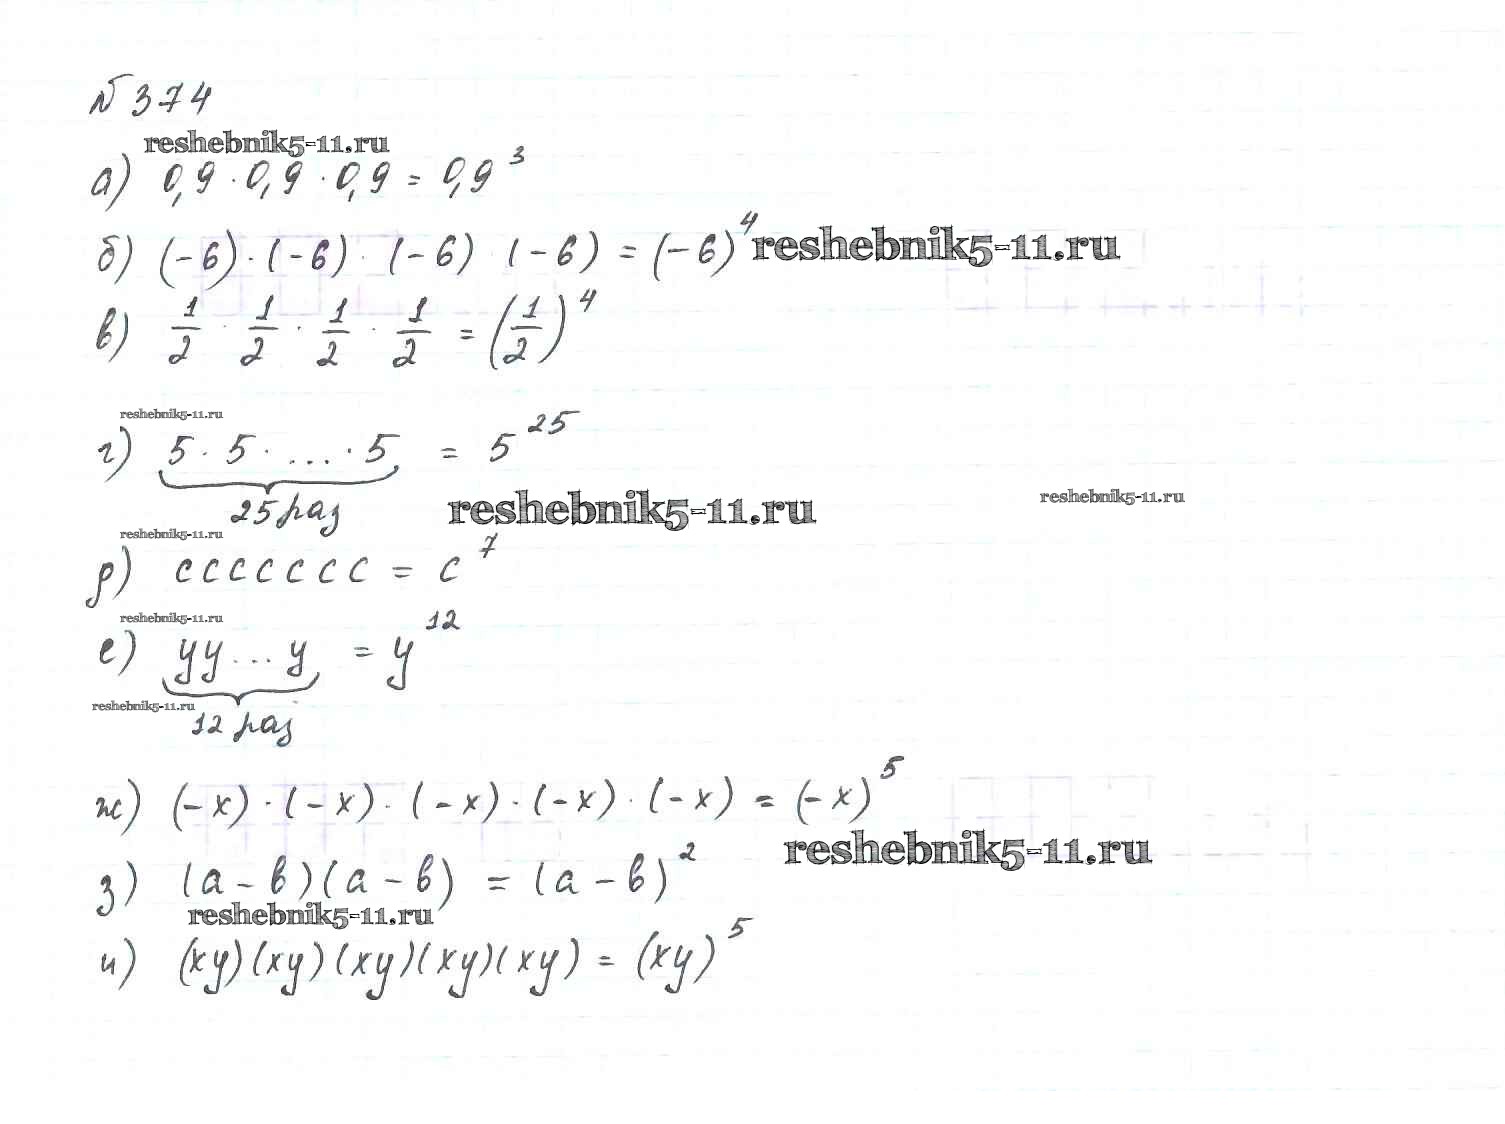 № 374
reshebnik5-11.ru
а) 0,9 · 0,9 · 0,9 = 0,9³
б) (-6) · (-6) · (-6) (-6) = (-6)⁴ reshebnik5-11.ru
в) 1/2 · 1/2 · 1/2 · 1/2 = (1/2)⁴
reshebnik5-11.ru
г) 5 · 5 · ... · 5 = 5²⁵
25 раз reshebnik5-11.ru reshebnik5-11.ru
reshebnik5-11.ru
д) c c c c c c c = c⁷
reshebnik5-11.ru
е) yy ... y = y¹²
reshebnik5-11.ru
12 раз
ж) (-x) · (-x) · (-x) · (-x) · (-x) = (-x)⁵
reshebnik5-11.ru
з) (a - b)(a - b) = (a - b)²
reshebnik5-11.ru
и) (xy)(xy)(xy)(xy)(xy) = (xy)⁵